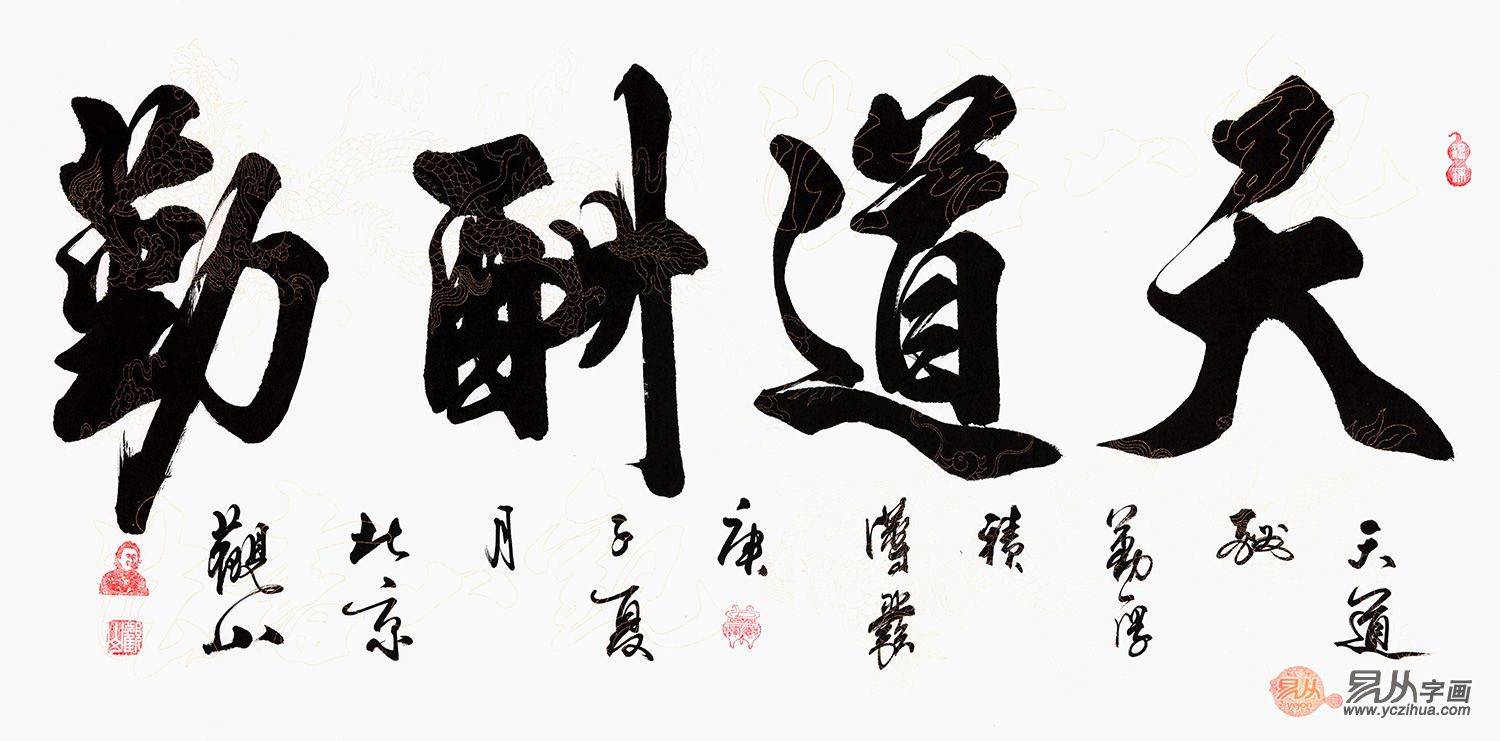 天道酬勤
天道
酬
勤厚
積
薄發
庚
子夏
月
北京
觀山
易从
yejon
易从字画
www.yczihua.com